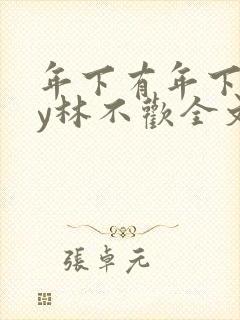 年下有年下
y林不歡全文
張卓元